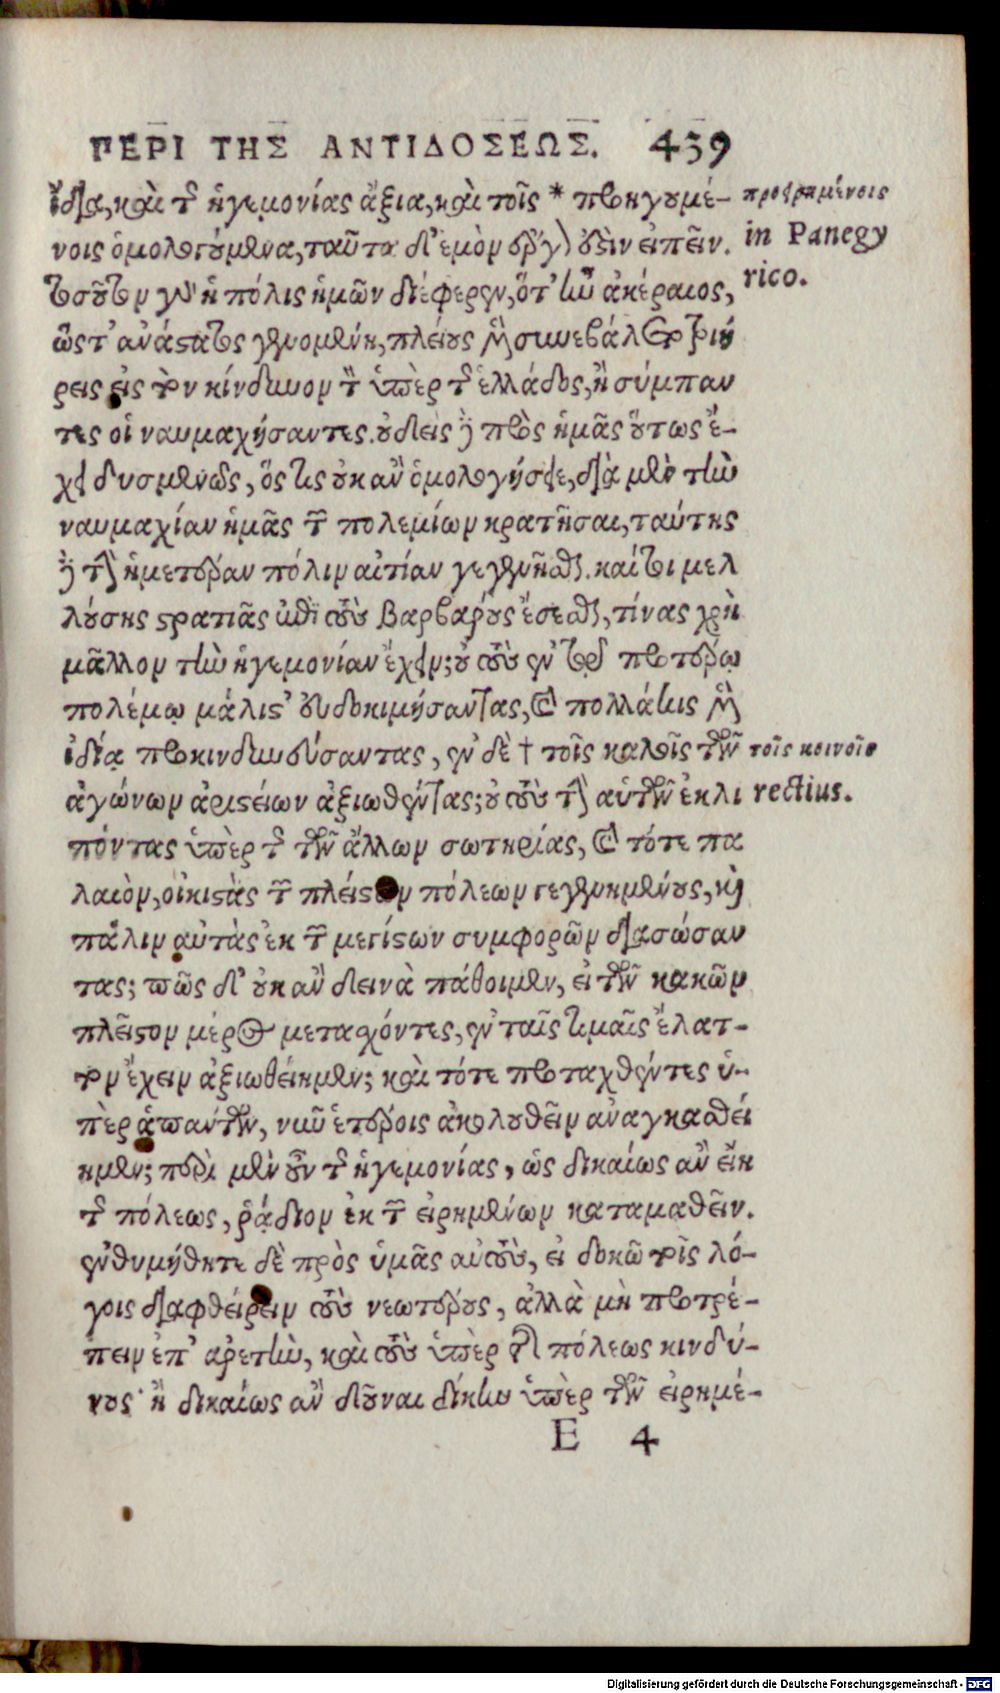 ΠΕΡΙ ΤΗΣ ΑΝΤΙΔΟΣΕΩΣ. 439
ἴδια, καὶ τῆς ἡγεμονίας ἄξια, καὶ τοῖς * προηγουμέ-
προῃρημένοις
in Panegy
rico.
νοις ὁμολογούμενα, ταῦτα δ' ἐμὸν ἔργον ἐστὶν εἰπεῖν.
τοσοῦτον γὰρ ἡ πόλις ἡμῶν διέφερεν, ὅτ' ἦν ἀκέραιος,
ὥστ' ἀνάστατος γενομένη, πλείους μὲν συνεβάλετο τριή
ρεις εἰς τὸν κίνδυνον τὸν ὑπὲρ τῆς ἑλλάδος, ἢ σύμπαν
τες οἱ ναυμαχήσαντες. οὐδεὶς δὲ πρὸς ἡμᾶς οὕτως ἔ-
χει δυσμενῶς, ὅστις οὐκ ἂν ὁμολογήσειε, διὰ μὲν τὴν
ναυμαχίαν ἡμᾶς τῶν πολεμίων κρατῆσαι, ταύτης
δὲ τὴν ἡμετέραν πόλιν αἰτίαν γεγενῆσθαι. καίτοι μελ
λούσης στρατιᾶς ἐπὶ τοὺς βαρβάρους ἔσεσθαι, τίνας χρὴ
μᾶλλον τὴν ἡγεμονίαν ἔχειν; οὐ τοὺς ἐν τῷ προτέρῳ
πολέμῳ μάλιστ' εὐδοκιμήσαντας, καὶ πολλάκις μὲν
ἰδίᾳ προκινδυνεύσαντας, ἐν δὲ † τοῖς καλοῖς τῶν
τοῖς κοινοῖς
rectius.
ἀγώνων ἀριστείων ἀξιωθέντας; οὐ τοὺς τὴν αὑτῶν ἐκλι
πόντας ὑπὲρ τῆς τῶν ἄλλων σωτηρίας, καὶ τότε πα
λαιὸν, οἰκιστὰς τῶν πλείστων πόλεων γεγενημένους, καὶ
πάλιν αὐτὰς ἐκ τῶν μεγίστων συμφορῶν διασώσαν
τας; πῶς δ' οὐκ ἂν δεινὰ πάθοιμεν, εἰ τῶν κακῶν
πλεῖστον μέρος μετασχόντες, ἐν ταῖς τιμαῖς ἔλατ-
τον ἔχειν ἀξιωθείημεν; καὶ τότε προταχθέντες ὑ-
πὲρ ἁπάντων, νῦν ἑτέροις ἀκολουθεῖν ἀναγκασθεί
ημεν; περὶ μὲν οὖν τῆς ἡγεμονίας, ὡς δικαίως ἂν εἴη
τῆς πόλεως, ῥᾴδιον ἐκ τῶν εἰρημένων καταμαθεῖν.
ἐνθυμήθητε δὲ πρὸς ὑμᾶς αὐτοὺς, εἰ δοκῶ τοῖς λό-
γοις διαφθείρειν τοὺς νεωτέρους, ἀλλὰ μὴ προτρέ-
πειν ἐπ' ἀρετὴν, καὶ τοὺς ὑπὲρ τῆς πόλεως κινδύ-
νους· ἢ δικαίως ἂν δοῦναι δίκην ὑπὲρ τῶν εἰρημέ-
E 4
Digitalisierung gefördert durch die Deutsche Forschungsgemeinschaft - DFG